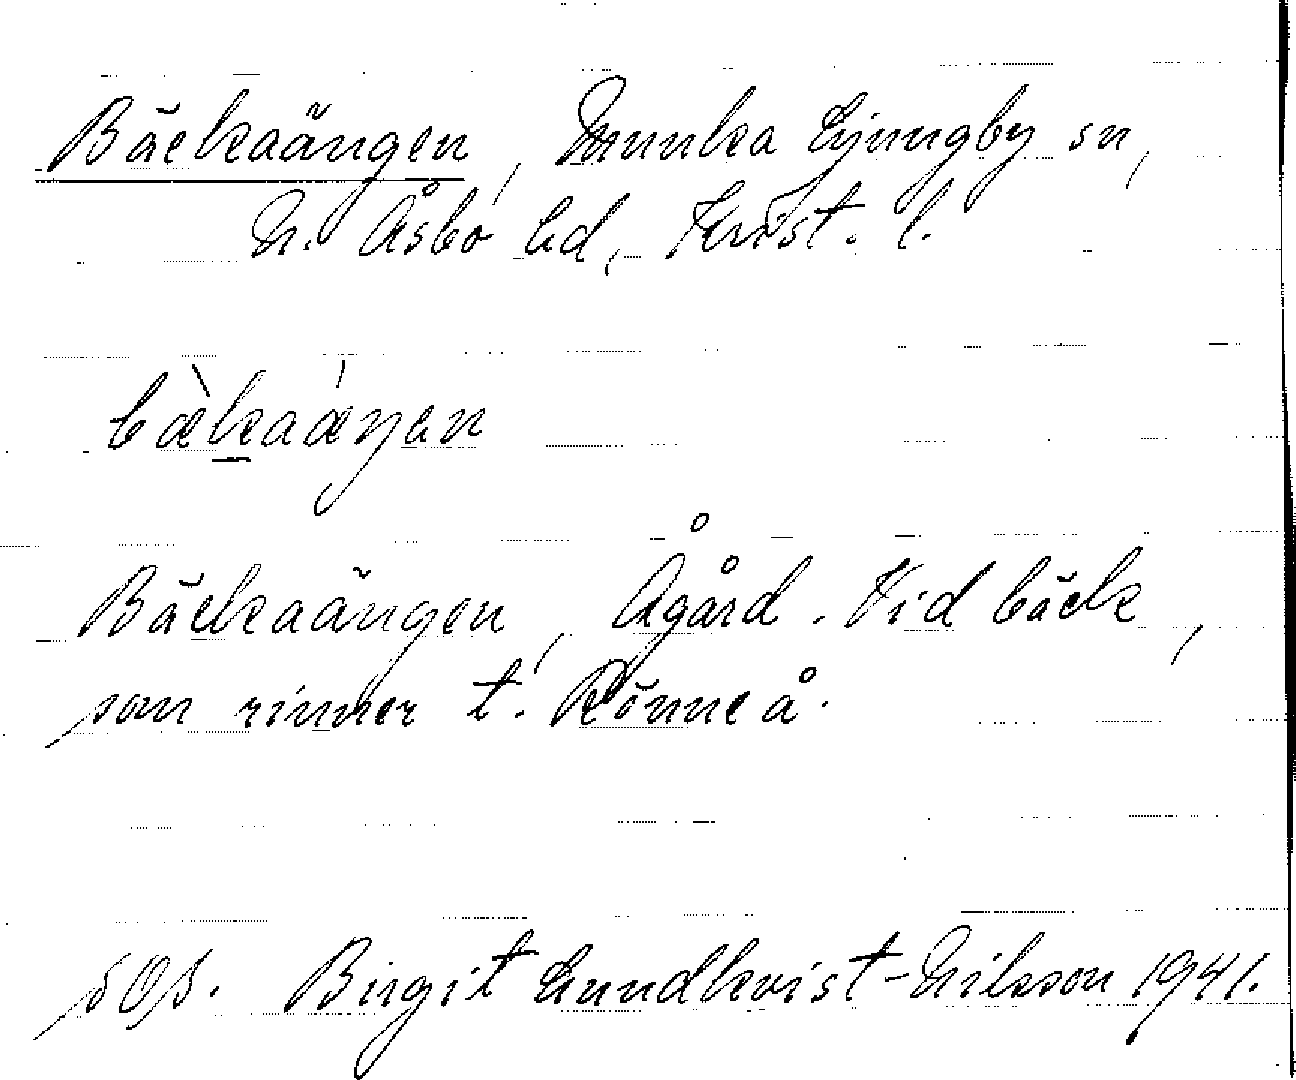 Bäckaängen, Munka Ljungby sn,
N. Åsbo hd, Krist. l.
bækaæŋen
Bäckaängen, Ågård. Vid bäck,
som rinner t. Rönneå.
sOs. Birgit Lundkvist-Nilsson 1941.